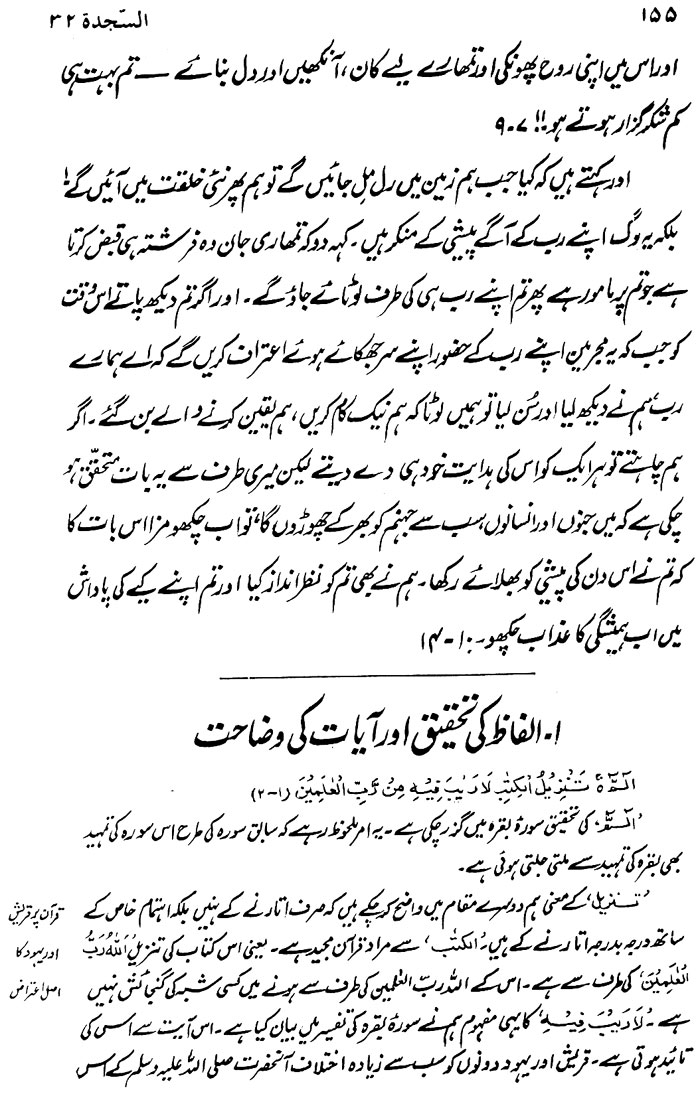 ۱۵۵
السّجدۃ ۳۲
اور اس میں اپنی روح پھونکی اور تمھارے لیے کان، آنکھیں اور دل بنائے — تم بہت ہی
کم شکر گزار ہوتے ہو!! ۷-۹
اور کہتے ہیں کہ کیا جب ہم زمین میں رل مل جائیں گے تو ہم پھر نئی خلقت میں آئیں گے!
بلکہ یہ لوگ اپنے رب کے آگے پیشی کے منکر ہیں۔ کہہ دو کہ تمھاری جان وہ فرشتہ ہی قبض کرتا
ہے جو تم پر مامور ہے پھر تم اپنے رب ہی کی طرف لوٹائے جاؤ گے۔ اور اگر تم دیکھ پاتے اس وقت
کو جب کہ یہ مجرمین اپنے رب کے حضور اپنے سر جھکائے ہوئے اعتراف کریں گے کہ اے ہمارے
رب، ہم نے دیکھ لیا اور سُن لیا تو ہمیں لوٹا کہ ہم نیک کام کریں، ہم یقین کرنے والے بن گئے۔ اگر
ہم چاہتے تو ہر ایک کو اس کی ہدایت خود ہی دے دیتے لیکن میری طرف سے یہ بات متحقّق ہو
چکی ہے کہ میں جنوں اور انسانوں، سب سے جہنم کو بھر کے چھوڑوں گا، تو اب چکھو مزا اس بات کا
کہ تم نے اس دن کی پیشی کو بھلائے رکھا۔ ہم نے بھی تم کو نظر انداز کیا اور تم اپنے کیے کی پاداش
میں اب ہمیشگی کا عذاب چکھو۔ ۱۰-۱۴
۱۔ الفاظ کی تحقیق اور آیات کی وضاحت
الٓمّٓ ۚ تَنْزِیْلُ الْکِتٰبِ لَا رَیْبَ فِیْہِ مِنْ رَّبِّ الْعٰلَمِیْنَ (۱-۲)
'الٓمّٓ' کی تحقیق سورۂ بقرہ میں گزر چکی ہے۔ یہ امر ملحوظ رہے کہ سابق سورہ کی طرح اس سورہ کی تمہید
بھی بقرہ کی تمہید سے ملتی جلتی ہوئی ہے۔
'تنزیل' کے معنی ہم دوسرے مقام میں واضح کر چکے ہیں کہ صرف اتارنے کے نہیں بلکہ اہتمام خاص کے
ساتھ درجہ بدرجہ اتارنے کے ہیں۔ 'الکتٰب' سے مراد قرآن مجید ہے۔ یعنی اس کتاب کی تنزیل اللہ رَبُّ
الْعٰلَمِیْنَ، کی طرف سے ہے۔ اس کے اللہ ربّ العٰلمین کی طرف سے ہونے میں کسی شبہ کی گنجائش نہیں
ہے۔ 'لَا رَیْبَ فِیْہِ' کا یہی مفہوم ہم نے سورۂ بقرہ کی تفسیر میں بیان کیا ہے۔ اس آیت سے اس کی
تائید ہوتی ہے۔ قریش اور یہود دونوں کو سب سے زیادہ اختلاف آنحضرت صلی اللہ علیہ وسلم کے اس
قرآن پر قریش
اور یہود کا
اصل اعتراض